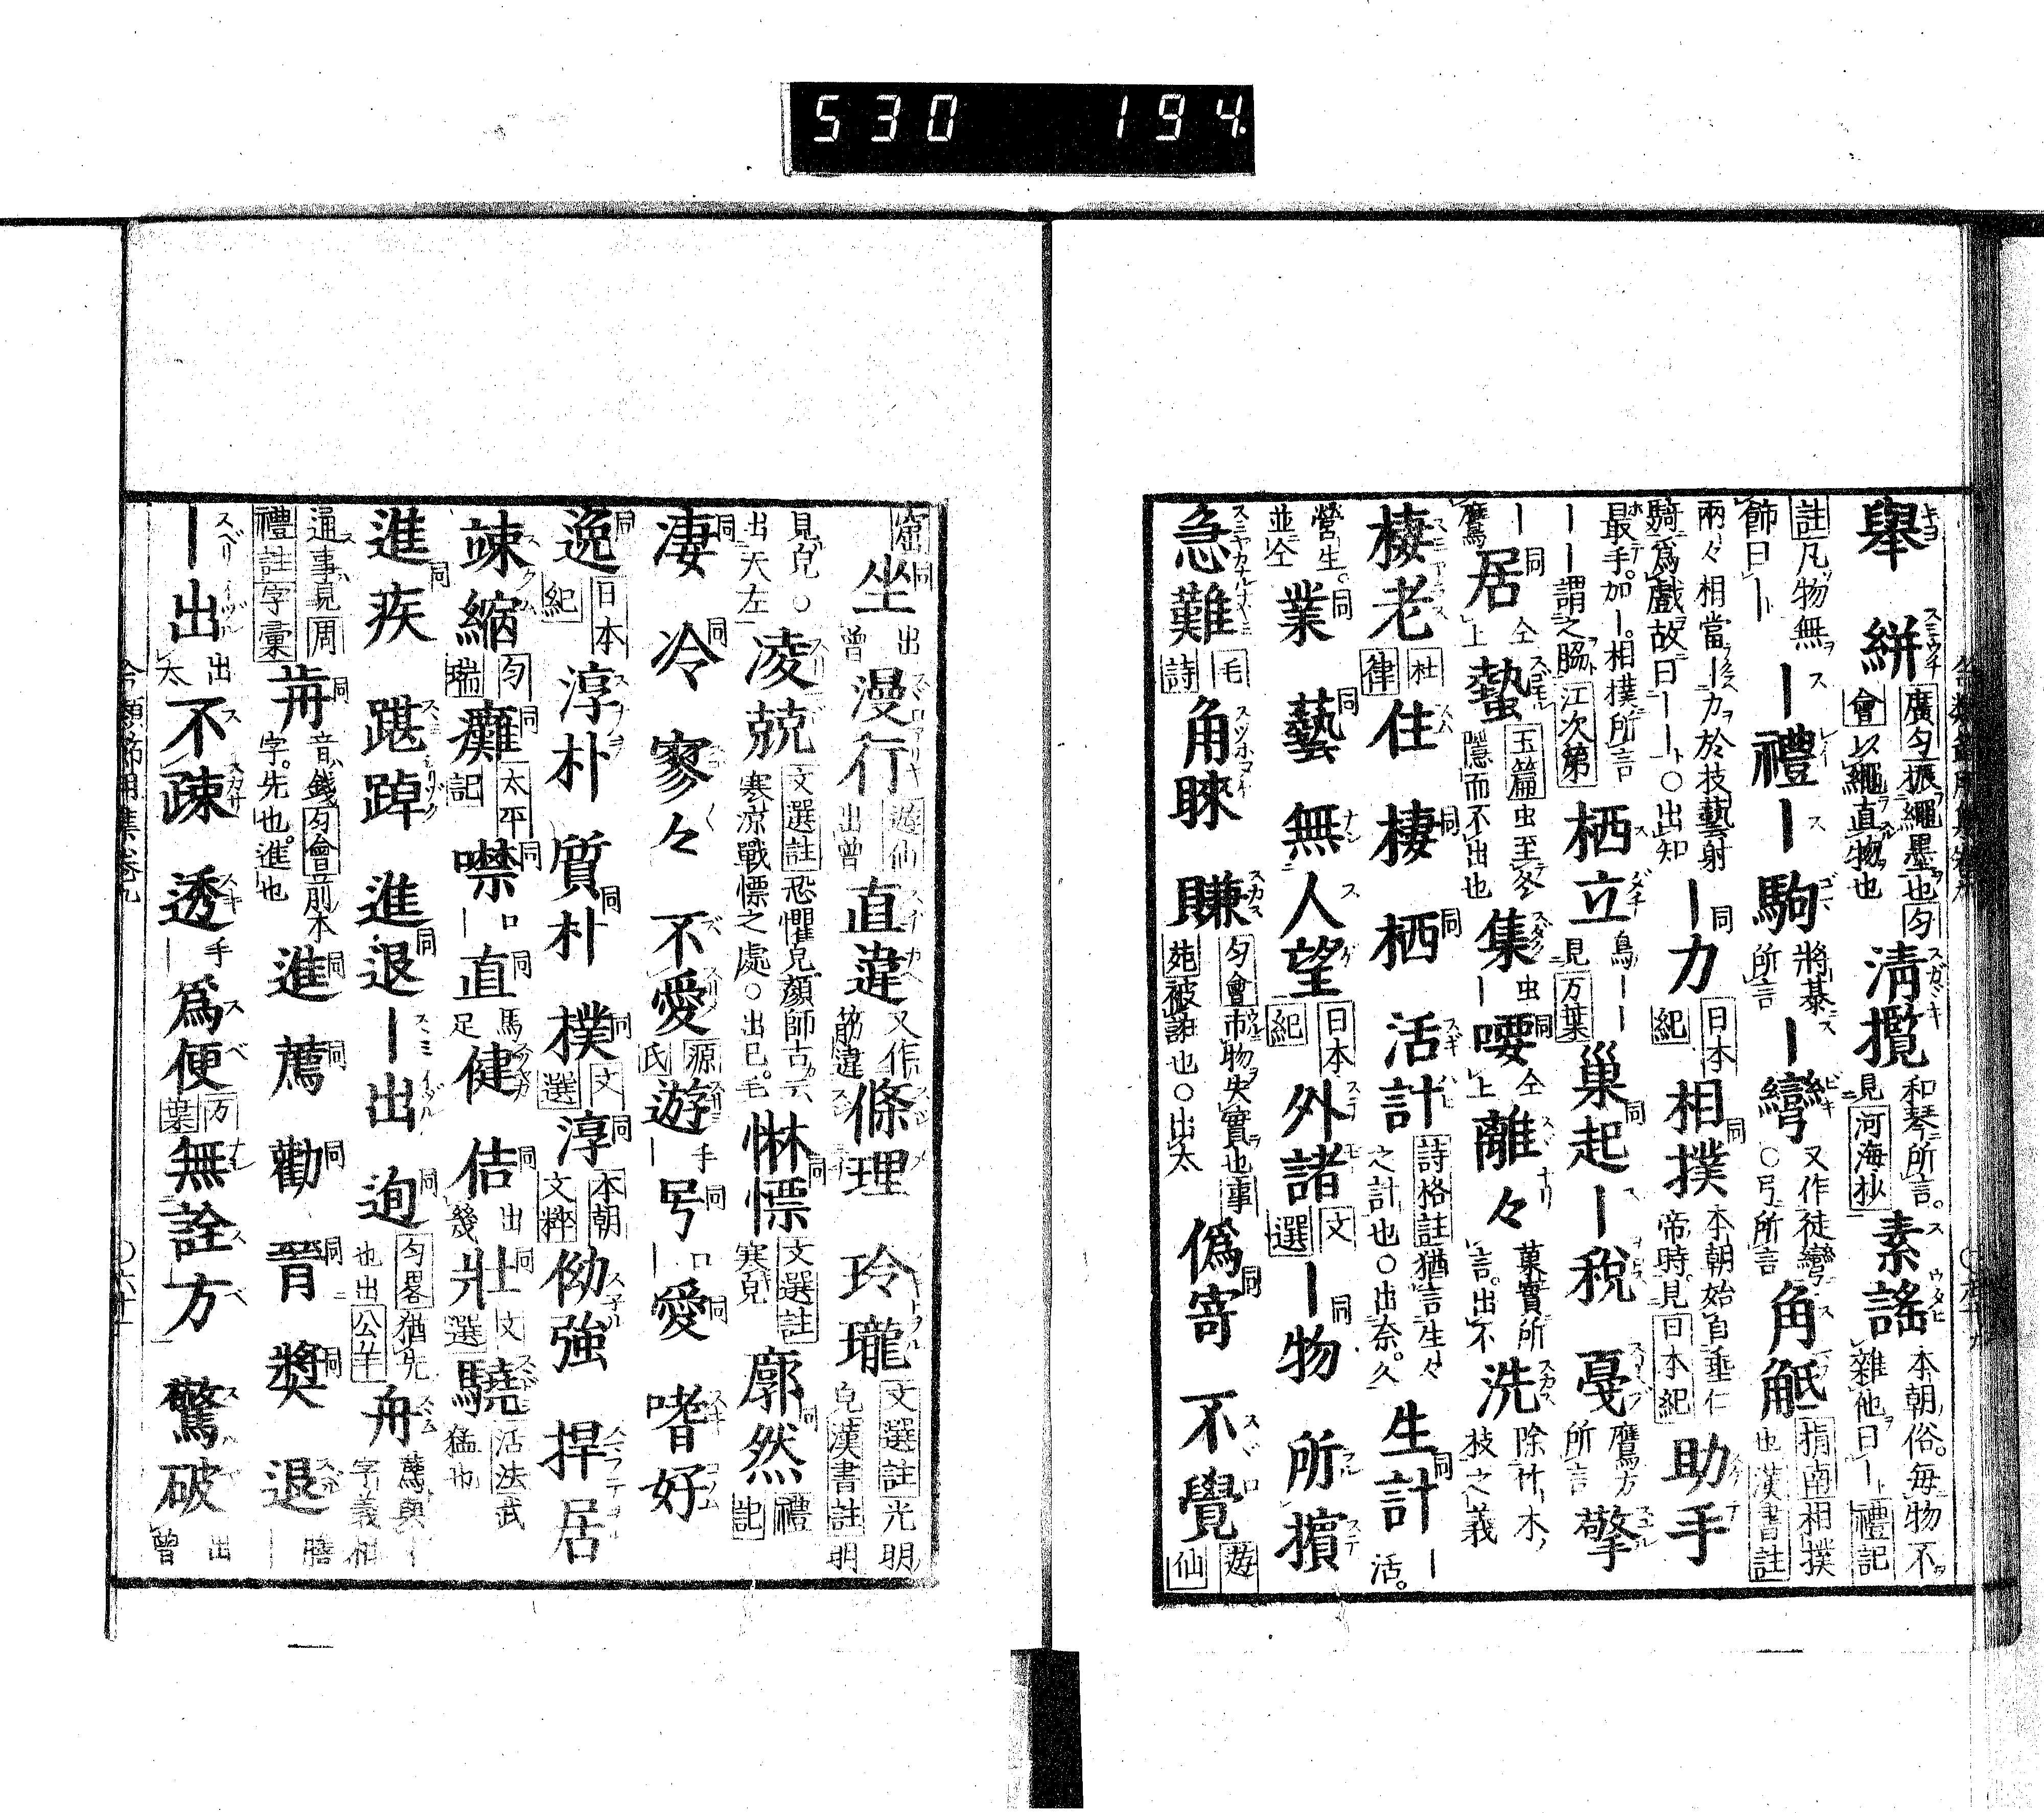 530 194.
擧 絣 廣匀振繩墨也匀會以繩直物也 淸攬 和琴所言。見河海抄 素謠 本朝俗。每物不雜他曰ー禮記
註凡物無飾曰ー ー禮 ー駒 將棊所言 ー彎 又作徒彎〇弓所言 角觝 指南相撲也漢書註
兩々相當ー力於技藝射騎爲戲故曰ーー〇出知 ー力 日本紀 相撲 本朝始自垂仁帝時。見日本紀 助手
最手。加ー。相撲所言ーー謂之脇 江次第 栖立 鳥ーー見万葉 巢起 ー税 戞 鷹方所言 擎
ー鷹 居 仝上 蟄 玉篇虫至冬隱而不出也 集 虫ー 喓 仝上 離々 菓實所言。出不 洗 除竹木枝之義
棲老 杜律 住 棲 栖 活計 詩格註猶言生々之計也〇出奈。久 生計 ー活。
營生。並仝 業 藝 無人望 日本紀 外諸 文選 ー物 所擯
急難 毛詩 角睞 賺 匀會市物失實也事苑被誑也〇出太 僞寄 不覺 遊仙
窟 坐 出曾 漫行 遊仙出曾 直違 又作筋違 條理 玲瓏 文選註光明皃漢書註明
見皃〇出天左 凌兢 文選註恐懼皃顏師古云寒涼戰慄之處〇出己。毛 惏慄 文選註寒皃 廓然 禮記
凄 冷 寥々 不愛 源氏 遊 手ー 号 口ー 愛 嗜好
逸 日本紀 淳朴 質朴 樸 文選 淳 本朝文粹 伮強 捍居
竦縮 匀瑞 癱 太平記 噤 口ー 直 馬足 健 佶 出幾 壯 文選 驍 活法武猛也
進疾 踸踔 進退 ー出 迿 匀畧猶先也出公羊 舟 薦與ー字義相
通事見周禮註字彙 歬 音錢匀會前本字。先也。進也 進 薦 勸 晉 奬 退 膳ー
ー出 出太 不疎 透 手ー 爲便 万葉 無詮方 驚破 出曾